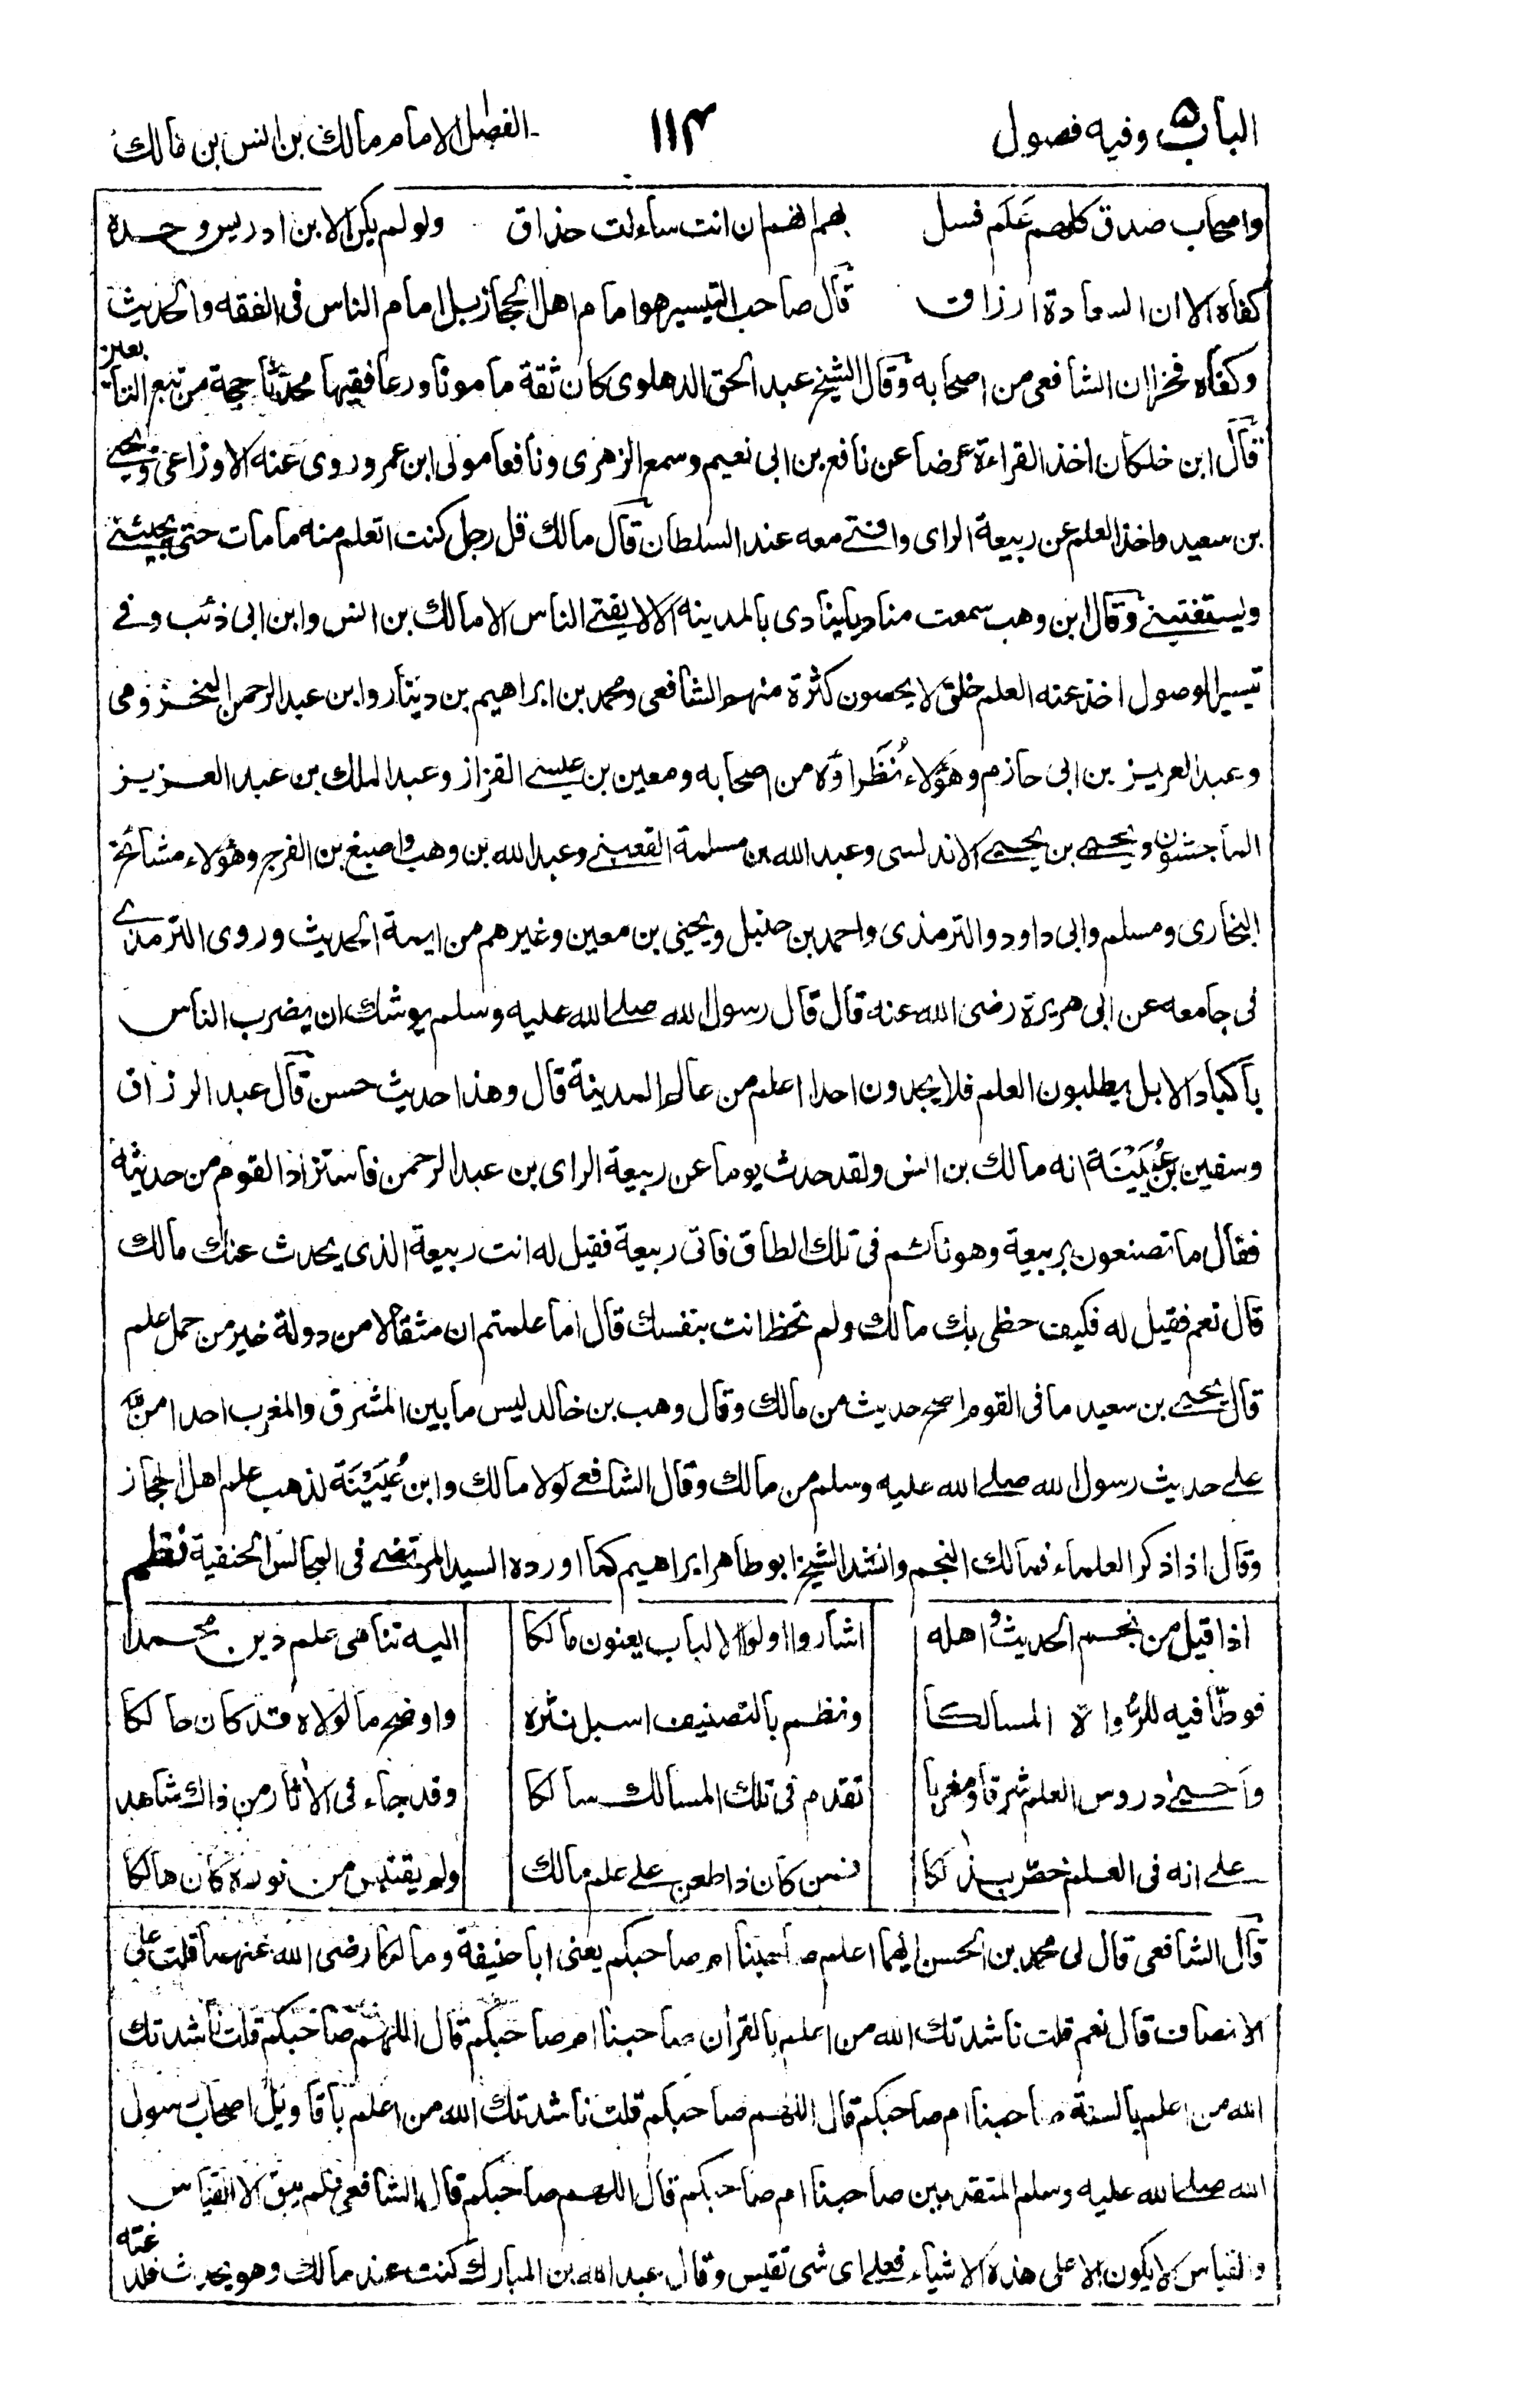 الباب ۵ وفيه فصول
۱۱۴
الفصل الامام مالك بن انس بن مالك
واصحاب صدق كلهم عَلَم فسل بهم انهم ان انت ساءلت حذاق ولو لم يكن الا ابن ادريس وحده
كفاه الا ان السعادة ارزاق قال صاحب التيسير هو امام اهل الحجاز بل امام الناس فى الفقه والحديث
وكفاه فخرا ان الشافعى من اصحابه وقال الشيخ عبد الحق الدهلوى كان ثقة مامونا ورعا فقيها محدّثا حجة من تبع التابعين
قال ابن خلكان اخذ القراءة عرضا عن نافع بن ابى نعيم وسمع الزهرى ونافعا مولى ابن عمر وروى عنه الاوزاعى ويحيے
بن سعيد واخذ العلم عن ربيعة الراى وافتے معه عند السلطان قال مالك قل رجل كنت اتعلم منه مامات حتى يجيئنے
ويستفتينے وقال ابن وهب سمعت مناديا ينادى بالمدينه الا لا يفتے الناس الا مالك بن انس وابن ابى ذئب وفے
تيسير الوصول اخذ عنه العلم خلق لا يحصون كثرة منهم الشافعى ومحمد بن ابراهيم بن دينار وابن عبد الرحمن المخزومى
وعبد العزيز بن ابى حازم وهؤلاء نُظَراؤه من اصحابه ومعين بن عيسے القزاز وعبد الملك بن عبد العزيز
الماجشون ويحيے بن يحيے الاندلسى وعبد الله بن مسلمة القعنبے وعبد الله بن وهب واصبغ بن الفرج وهؤلاء مشائخ
البخارى ومسلم وابى داود والترمذى واحمد بن حنبل ويحيى بن معين وغيرهم من ايمة الحديث وروى الترمذے
فى جامعه عن ابى هريرة رضى الله عنه قال قال رسول الله صلے الله عليه وسلم يوشك ان يضرب الناس
باكباد الابل يطلبون العلم فلا يجدون احدا اعلم من عالم المدينة قال وهذا حديث حسن قال عبد الرزاق
وسفين بن عُيَيْنَة انه مالك بن انس ولقد حدث يوما عن ربيعة الراى بن عبد الرحمن فاستزاد القوم من حديثه
فقال ما تصنعون بربيعة وهو نائم فى تلك الطاق فاتى ربيعة فقيل له انت ربيعة الذى يحدث عنك مالك
قال نعم فقيل له فكيف حظى بك مالك ولم تحظ انت بنفسك قال اما علمتم ان مثقالا من دولة خير من حمل علم
قال يحيے بن سعيد ما فى القوم اصح حديث من مالك وقال وهب بن خالد ليس ما بين المشرق والمغرب احدا من
علے حديث رسول الله صلے الله عليه وسلم من مالك وقال الشافعے لولا مالك وابن عُيَيْنَة لذهب علم اهل الحجاز
وقال اذا ذكر العلماء فمالك النجم وانشد الشيخ ابو طاهر ابراهيم كما اورده السيد المرتضے فى المجالس الحنفية نظم
اذا قيل من نجم الحديث واهله اشاروا اولوا الالباب يعنون مالكا اليه تناهى علم دين محمدا
فوطّا فيه للرُّواة المسالكا ونظم بالتصنيف اسبل نثره واوضح ما لولاه قد كان حالكا
واحيے دروس العلم شرقا ومغربا تقدم فى تلك المسالك سالكا وقد جاء فى الاثار من ذاك شاهد
علے انه فى العلم خصّ بذلكا فمن كان ذا طعن علے علم مالك ولم يقتبس من نوره كان هالكا
قال الشافعى قال لى محمد بن الحسن ايهما اعلم صاحبنا ام صاحبكم يعنى ابا حنيفة ومالكا رضى الله عنهما قلت على
الانصاف قال نعم قلت ناشدتك الله من اعلم بالقران صاحبنا ام صاحبكم قال اللهم صاحبكم قلت ناشدتك
الله من اعلم بالسنة صاحبنا ام صاحبكم قال اللهم صاحبكم قلت ناشدتك الله من اعلم باقاويل اصحاب رسول
الله صلے الله عليه وسلم المتقدمين صاحبنا ام صاحبكم قال اللهم صاحبكم قال الشافعى فلم يبق الا القياس
والقياس لا يكون الا على هذه الاشياء فعلے اى شى تقيس وقال عبد الله بن المبارك كنت عند مالك وهو يحدث فلدغته